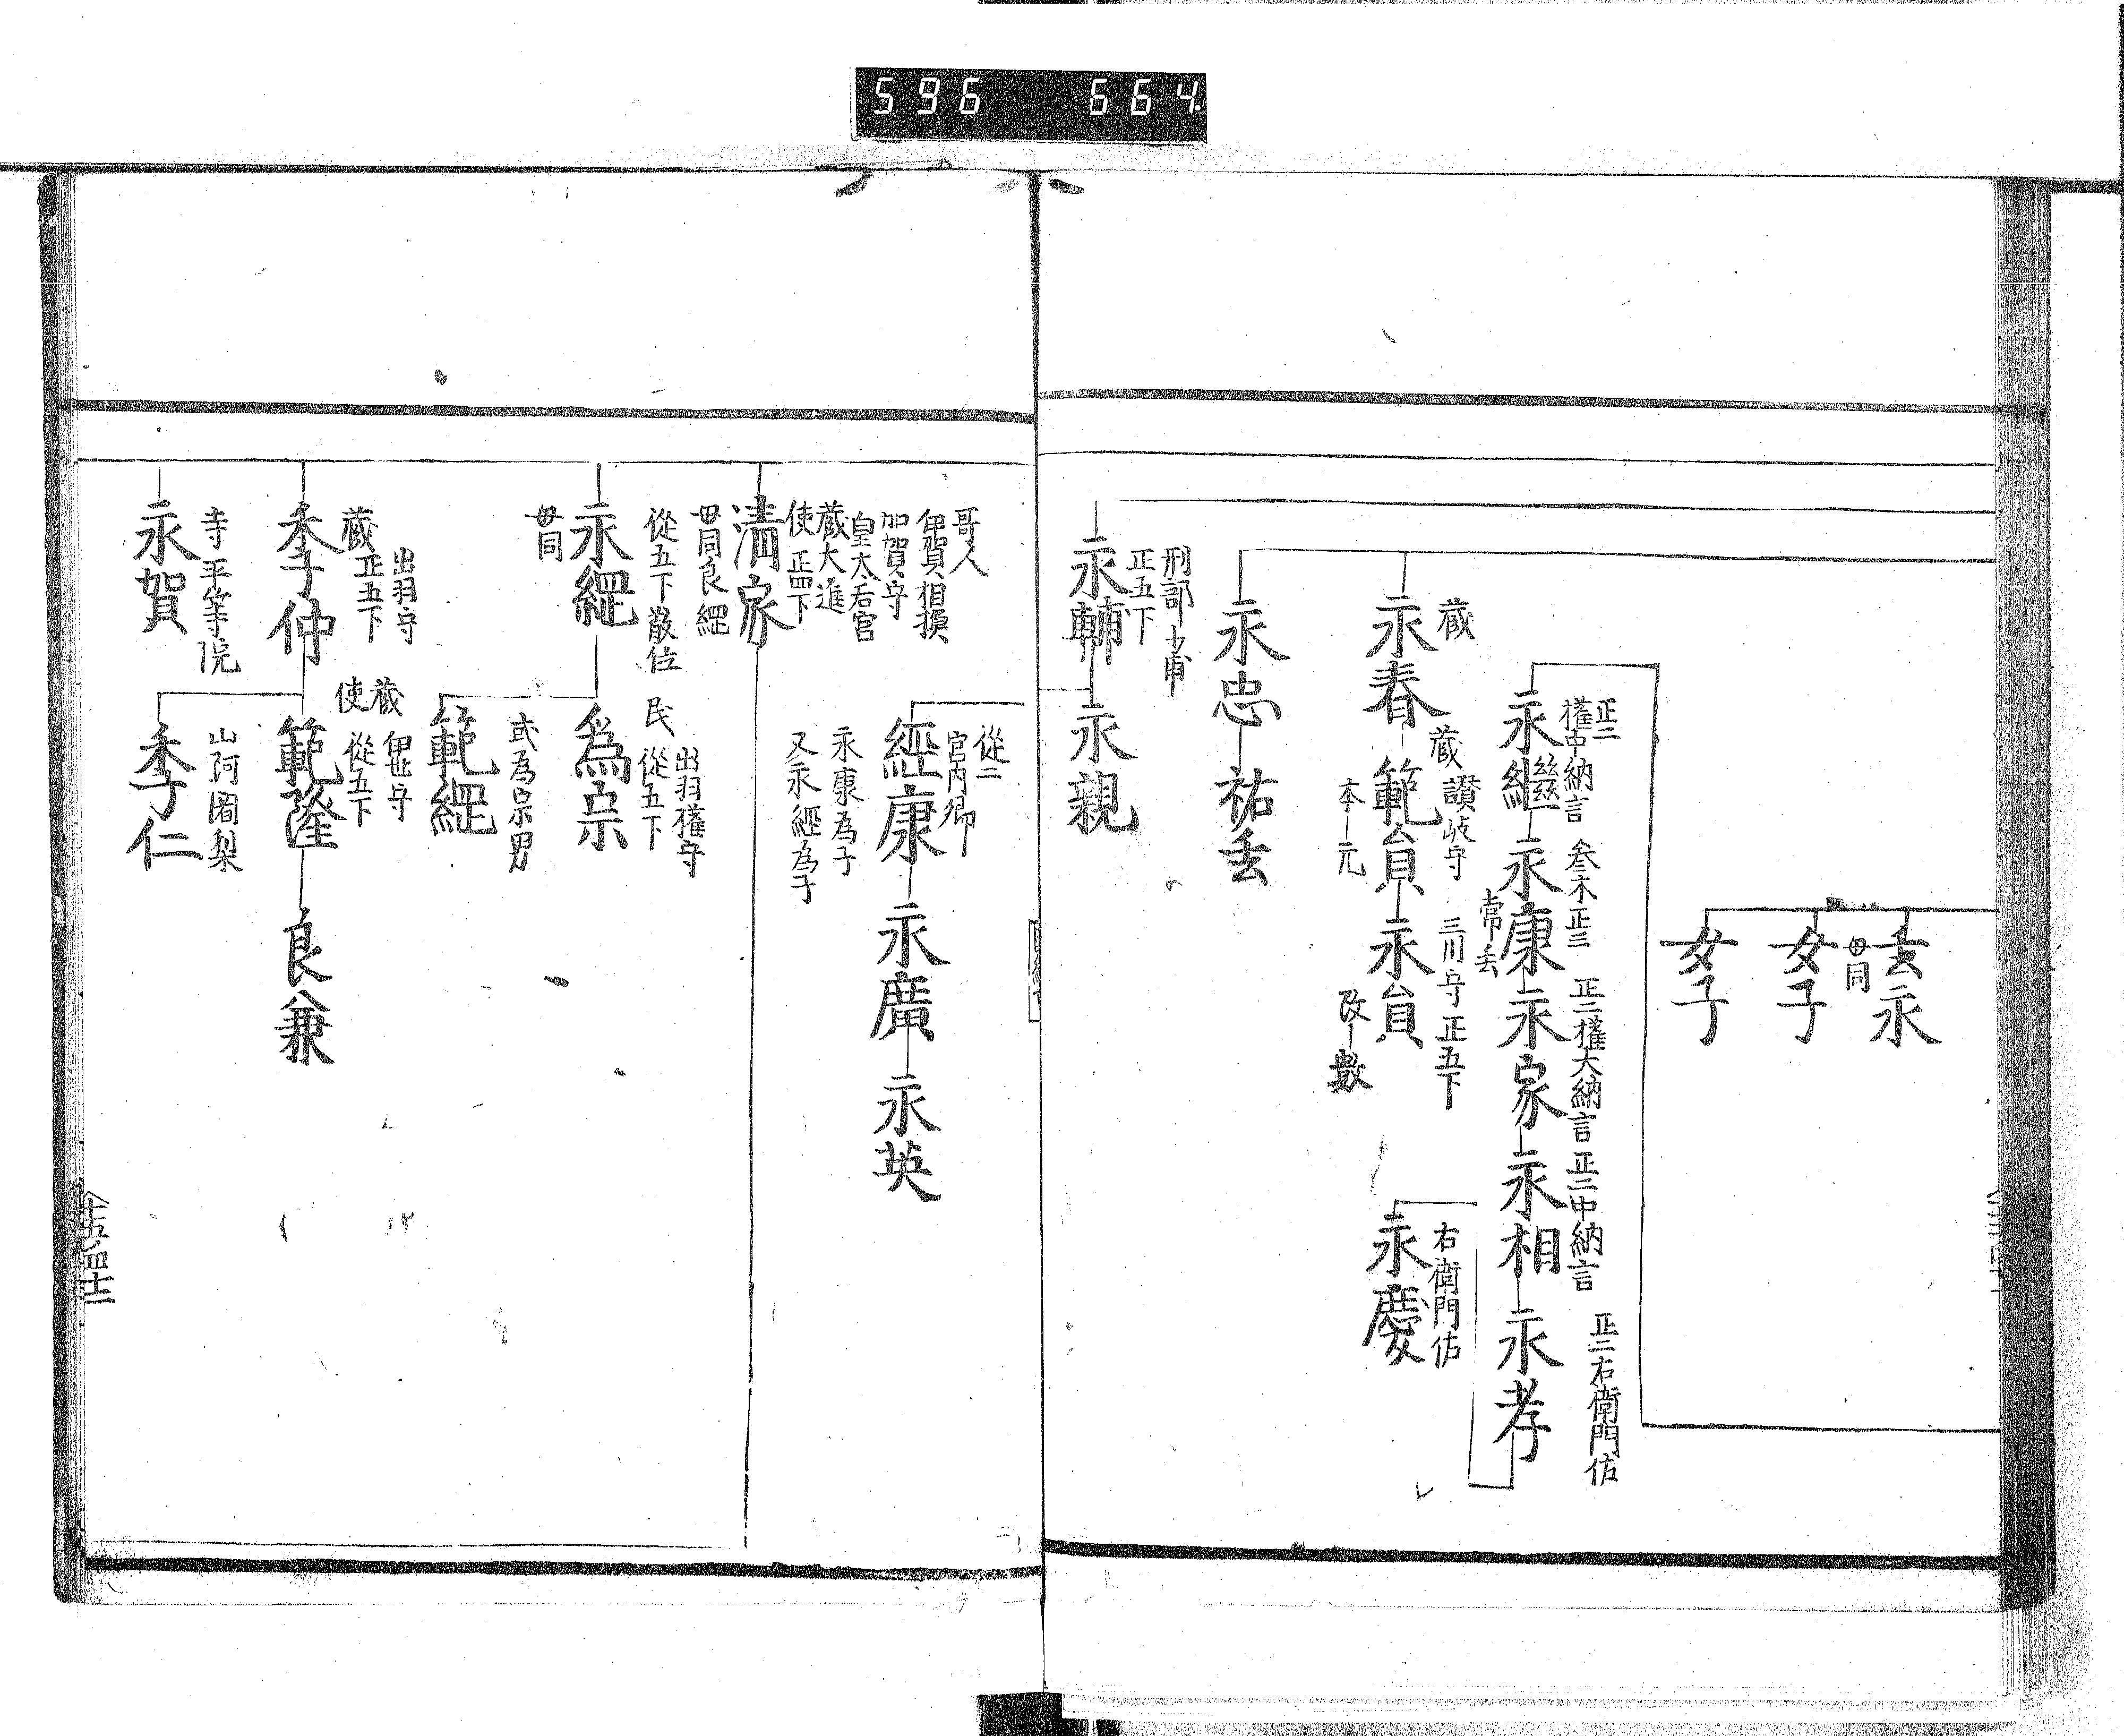 596 664
去永
母同
女子
女子
正二
權中納言
永繼
叅木正三
永康
常丢
正二權大納言
永家
正二中納言
永相
正二右衛門佐
永孝
右衛門佐
永慶
蔵
永春
蔵 讃岐守
範貟
本元
三川守正五下
永貟
改數
永忠
祐丢
刑部少甫
正五下
永輔
永親
從二
宮内卿
經康
永康為子
又永經為子
永廣
永英
哥人
伊賀相摸
加賀守
皇太后宮
蔵大進
使正四下
清家
母同良經
從五下散位
永經
母同
民
出羽權守
從五下
為宗
或為宗男
範經
出羽守
蔵正五下
季仲
蔵
使
伊世守
從五下
範隆
良兼
山阿闍梨
季仁
寺平等院
永賀